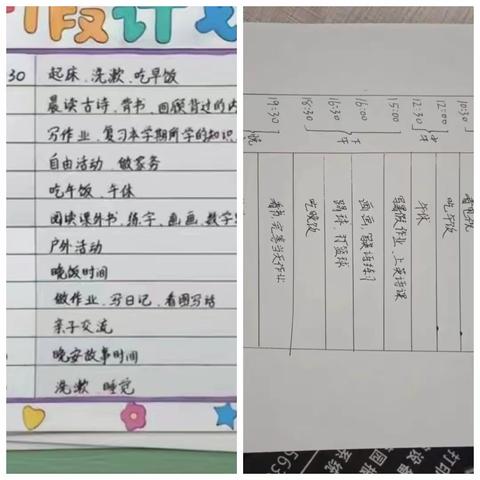 假计划
30 起床、洗漱、吃早饭
晨读古诗、背书、回顾背过的内
写作业、复习本学期所学的知识
自由活动、做家务
吃午饭、午休
阅读课外书、练字、画画、数学
户外活动
晚饭时间
做作业、写日记、看图写话
亲子交流
晚安故事时间
洗漱、睡觉
10:30 看电视
12:00 吃午饭
12:30 午休
15:00 写暑假作业、上英语课
16:00 画画,写英语练习
16:30 踢球、打篮球
18:30 吃晚饭
19:30 看书,完善当天作业
中午
下午
晚
打印
设备
系统
563